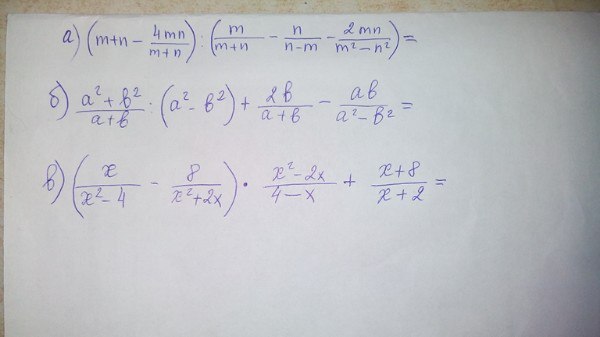 а) (m+n − 4mn/(m+n)) : (m/(m+n) − n/(n−m) − 2mn/(m²−n²)) =
б) (a²+b²)/(a+b) : (a²−b²) + 2b/(a+b) − ab/(a²−b²) =
в) (x/(x²−4) − 8/(x²+2x)) · (x²−2x)/(4−x) + (x+8)/(x+2) =